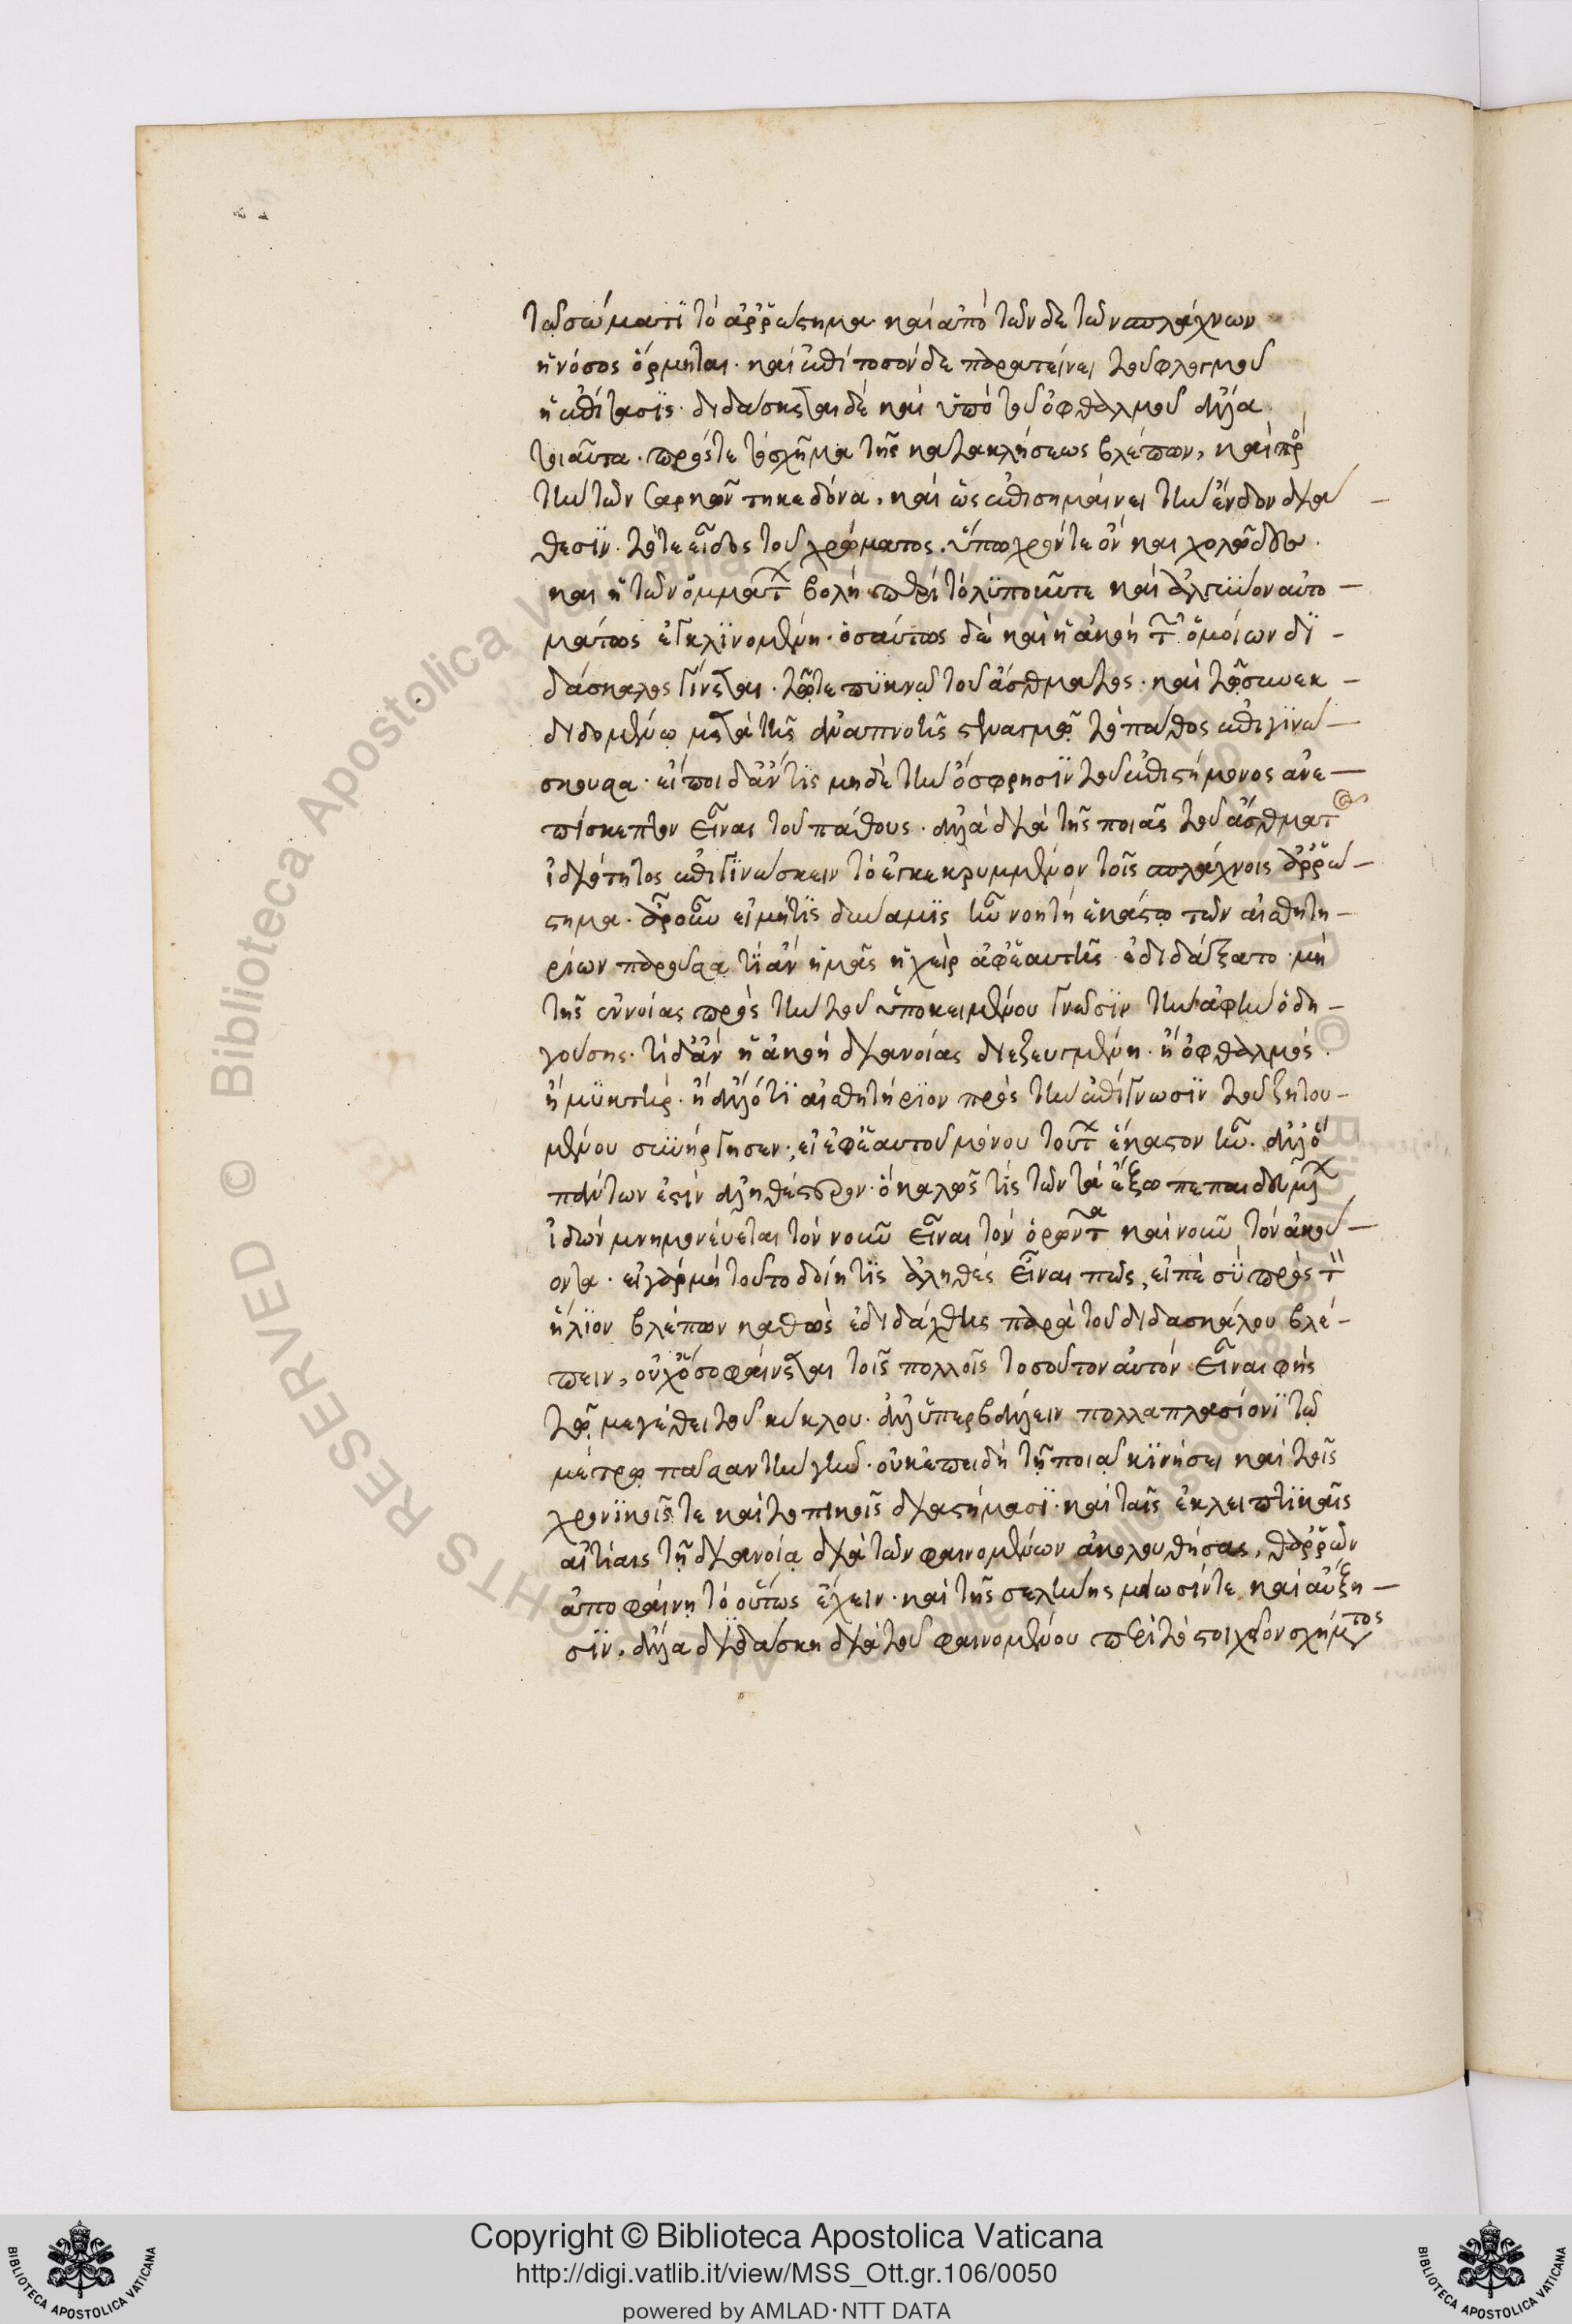 τῶ σώματϊ τὸ ἀῤῥώστημα· καὶ ἀπὸ τῶνδε τῶν σπλάχνων
ἡ νόσος ὅρμηται· καὶ ἐπὶ τοσόνδε παρατείνει τοῦ φλογμοῦ
ἡ ἐπίτασϊς· διδάσκεται δὲ καὶ ὑπὸ τοῦ ὀφθαλμοῦ ἄλλα
τοιαῦτα· πρός τε τὸ σχῆμα τῆς κατακλήσεως βλέπων, καὶ πρὸ
τὴν τῶν σαρκῶν τηκεδόνα· καὶ ὡς ἐπισημαίνει τὴν ἔνδον διά
θεσϊν· τό τε εἶδος τοῦ χρώματος· ὕπωχρόν τε ὂν καὶ χολῶδες·
καὶ ἡ τῶν ὀμμάτ βολὴ περὶ τὸ λϋποῦν τε καὶ ἀλγεϋνὸν αὐτο
μάτως ἐγκλϊνομένη· ὁσαύτως δὲ καὶ ἡ ἀκοὴ τ ὁμοίων δϊ
δάσκαλος γίνεται· τῶ τε πϋκνῶ τοῦ ἄσθματος· καὶ τῶ συνεκ
διδομένω μετὰ τῆς ἀναπνοῆς στεναγμῶ τὸ πάθος ἐπιγϊνώ
σκουσα· εἴποι δ' ἄν τϊς μηδὲ τὴν ὄσφρησϊν τοῦ ἐπιστήμονος ἀνε
πίσκεπτον εἶναι τοῦ πάθους· ἀλλὰ διὰ τῆς ποιᾶς τοῦ ἄσθματος
ἰδιότητος ἐπιγϊνώσκειν τὸ ἐγκεκρυμμένον τοῖς σπλάχνοις ἀῤῥώ
στημα· ἆρ' οὖν εἰ μή τϊς δύναμϊς ἦν νοητὴ ἑκάστω τῶν αἰσθητη
ρίων παροῦσα τί ἂν ἡμᾶς ἡ χεὶρ ἀφ' ἑαυτῆς ἐδιδάξατο· μὴ
τῆς ἐννοίας πρὸς τὴν τοῦ ὑποκειμένου γνῶσϊν τὴν ἁφὴν ὁδη
γούσης· τί δ' ἂν ἡ ἀκοὴ διανοίας διεζευγμένη· ἢ ὀφθαλμός·
ἢ μϋκτήρ· ἢ ἄλλό τϊ αἰσθητήρϊον πρὸς τὴν ἐπίγνωσϊν τοῦ ζητου
μένου συνήργησεν·, εἰ ἐφ' ἑαυτοῦ μόνου τούτ ἕκαστον ἦν· ἀλλ' ὃ
πάντων ἐστὶν ἀληθέστερον· ὃ καλῶς τϊς τῶν τὰ ἔξω πεπαιδευμέν
ἰδὼν μνημονεύεται τὸν νοῦν εἶναι τὸν ὁρῶντα καὶ νοῦν τὸν ἀκού
οντα· εἰ γὰρ μὴ τοῦτο δοίη τϊς ἀληθὲς εἶναι πῶς, εἰπὲ σὺ πρὸς τ
ἥλϊον βλέπων καθὼς ἐδιδάχθης παρὰ τοῦ διδασκάλου βλέ
πειν, οὐχ ὅσο φαίνεται τοῖς πολλοῖς τοσοῦτον αὐτὸν εἶναι φῂς
τῶ μεγέθει τοῦ κύκλου· ἀλλ' ὑπερβάλλειν πολλαπλασίονϊ τῶ
μέτρω πᾶσαν τὴν γῆν· οὐκ ἐπειδὴ τῆ ποιᾶ κϊνήσει καὶ τοῖς
χρονϊκοῖς τε καὶ τοπικοῖς διαστήμασϊ· καὶ ταῖς ἐκλειπτϊκαῖς
αἰτίαις τῆ διανοία διὰ τῶν φαινομένων ἀκολουθήσας, θαῤῥῶν
ἀποφαίνη τὸ οὕτως ἔχειν· καὶ τῆς σελήνης μείωσίν τε καὶ αὔξη
σϊν, ἄλλα διδάσκη διὰ τοῦ φαινομένου περὶ τὸ στοιχεῖον σχήματος